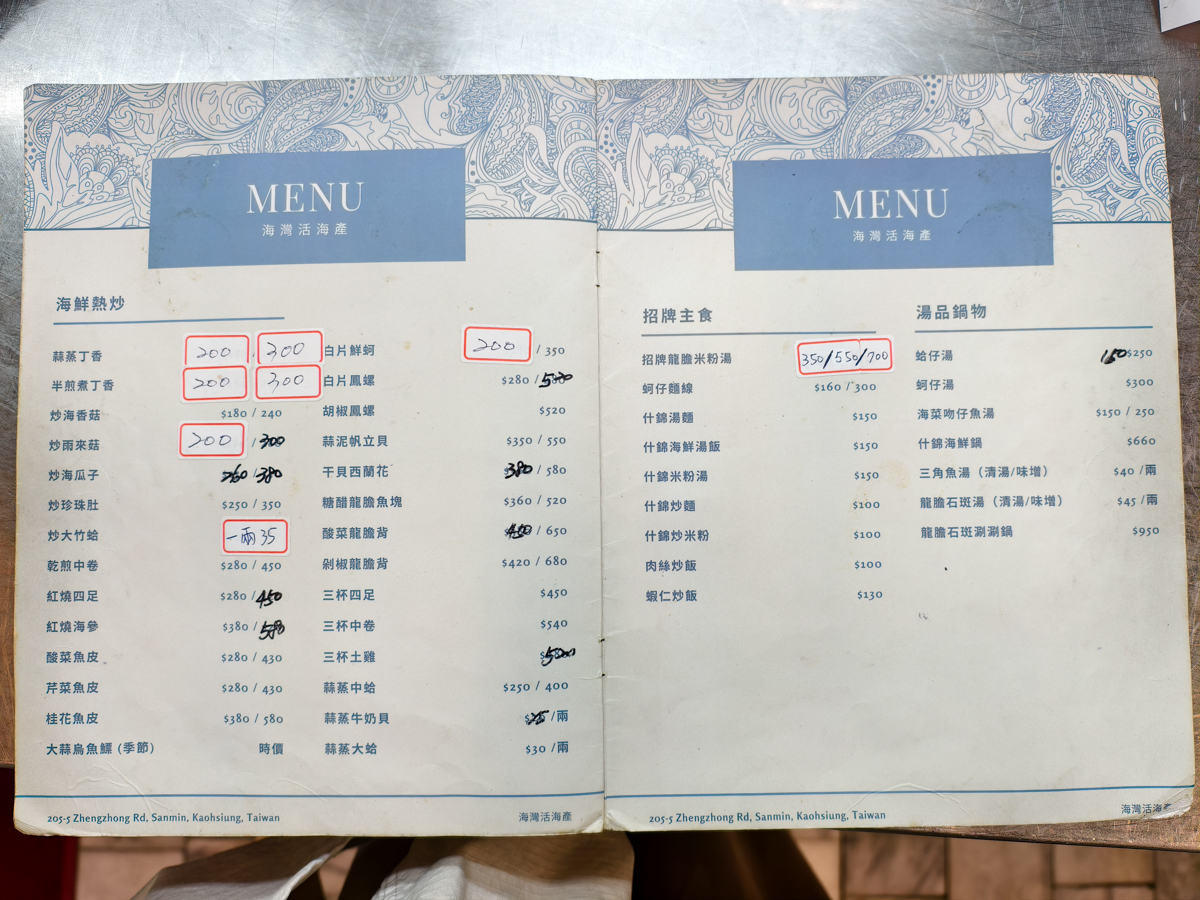 MENU
海灣活海產
海鮮熱炒
蒜蒸丁香 200 300
半煎煮丁香 200 300
炒海香菇 $180 / 240
炒雨來菇 200 / 300
炒海瓜子 260 / 380
炒珍珠肚 $250 / 350
炒大竹蛤 一兩35
乾煎中卷 $280 / 450
紅燒四足 $280 / 450
紅燒海參 $380 / 580
酸菜魚皮 $280 / 430
芹菜魚皮 $280 / 430
桂花魚皮 $380 / 580
大蒜烏魚鰾 (季節) 時價
白片鮮蚵 200 / 350
白片鳳螺 $280 /
胡椒鳳螺 $520
蒜泥帆立貝 $350 / 550
干貝西蘭花 380 / 580
糖醋龍膽魚塊 $360 / 520
酸菜龍膽背 / 650
剁椒龍膽背 $420 / 680
三杯四足 $450
三杯中卷 $540
三杯土雞
蒜蒸中蛤 $250 / 400
蒜蒸牛奶貝 /兩
蒜蒸大蛤 $30 /兩
205-5 Zhengzhong Rd, Sanmin, Kaohsiung, Taiwan
海灣活海產
MENU
海灣活海產
招牌主食
招牌龍膽米粉湯 350/550/700
蚵仔麵線 $160 / 300
什錦湯麵 $150
什錦海鮮湯飯 $150
什錦米粉湯 $150
什錦炒麵 $100
什錦炒米粉 $100
肉絲炒飯 $100
蝦仁炒飯 $130
湯品鍋物
蛤仔湯 $250
蚵仔湯 $300
海菜吻仔魚湯 $150 / 250
什錦海鮮鍋 $660
三角魚湯（清湯/味增） $40 /兩
龍膽石斑湯（清湯/味增） $45 /兩
龍膽石斑涮涮鍋 $950
205-5 Zhengzhong Rd, Sanmin, Kaohsiung, Taiwan
海灣活海產